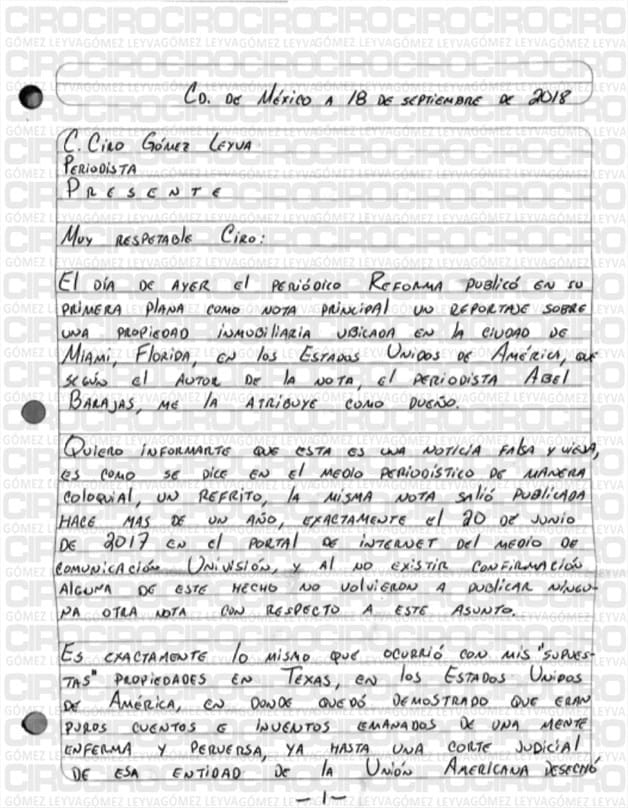 Cd. de México a 18 de septiembre de 2018
C. Ciro Gómez Leyva
Periodista
Presente
Muy respetable Ciro:
El día de ayer el periódico Reforma publicó en su
primera plana como nota principal un reportaje sobre
una propiedad inmobiliaria ubicada en la ciudad de
Miami, Florida, en los Estados Unidos de América, que
según el autor de la nota, el periodista Abel
Barajas, me la atribuye como dueño.
Quiero informarte que esta es una noticia falsa y vieja,
es como se dice en el medio periodístico de manera
coloquial, un refrito, la misma nota salió publicada
hace mas de un año, exactamente el 20 de junio
de 2017 en el portal de internet del medio de
comunicación Univisión, y al no existir confirmación
alguna de este hecho no volvieron a publicar ningu-
na otra nota con respecto a este asunto.
Es exactamente lo mismo que ocurrió con mis "supues-
tas" propiedades en Texas, en los Estados Unidos
de América, en donde quedó demostrado que eran
puros cuentos e inventos emanados de una mente
enferma y perversa, ya hasta una corte judicial
de esa entidad de la Unión Americana desechó
-1-
CIRO
GÓMEZ LEYVA